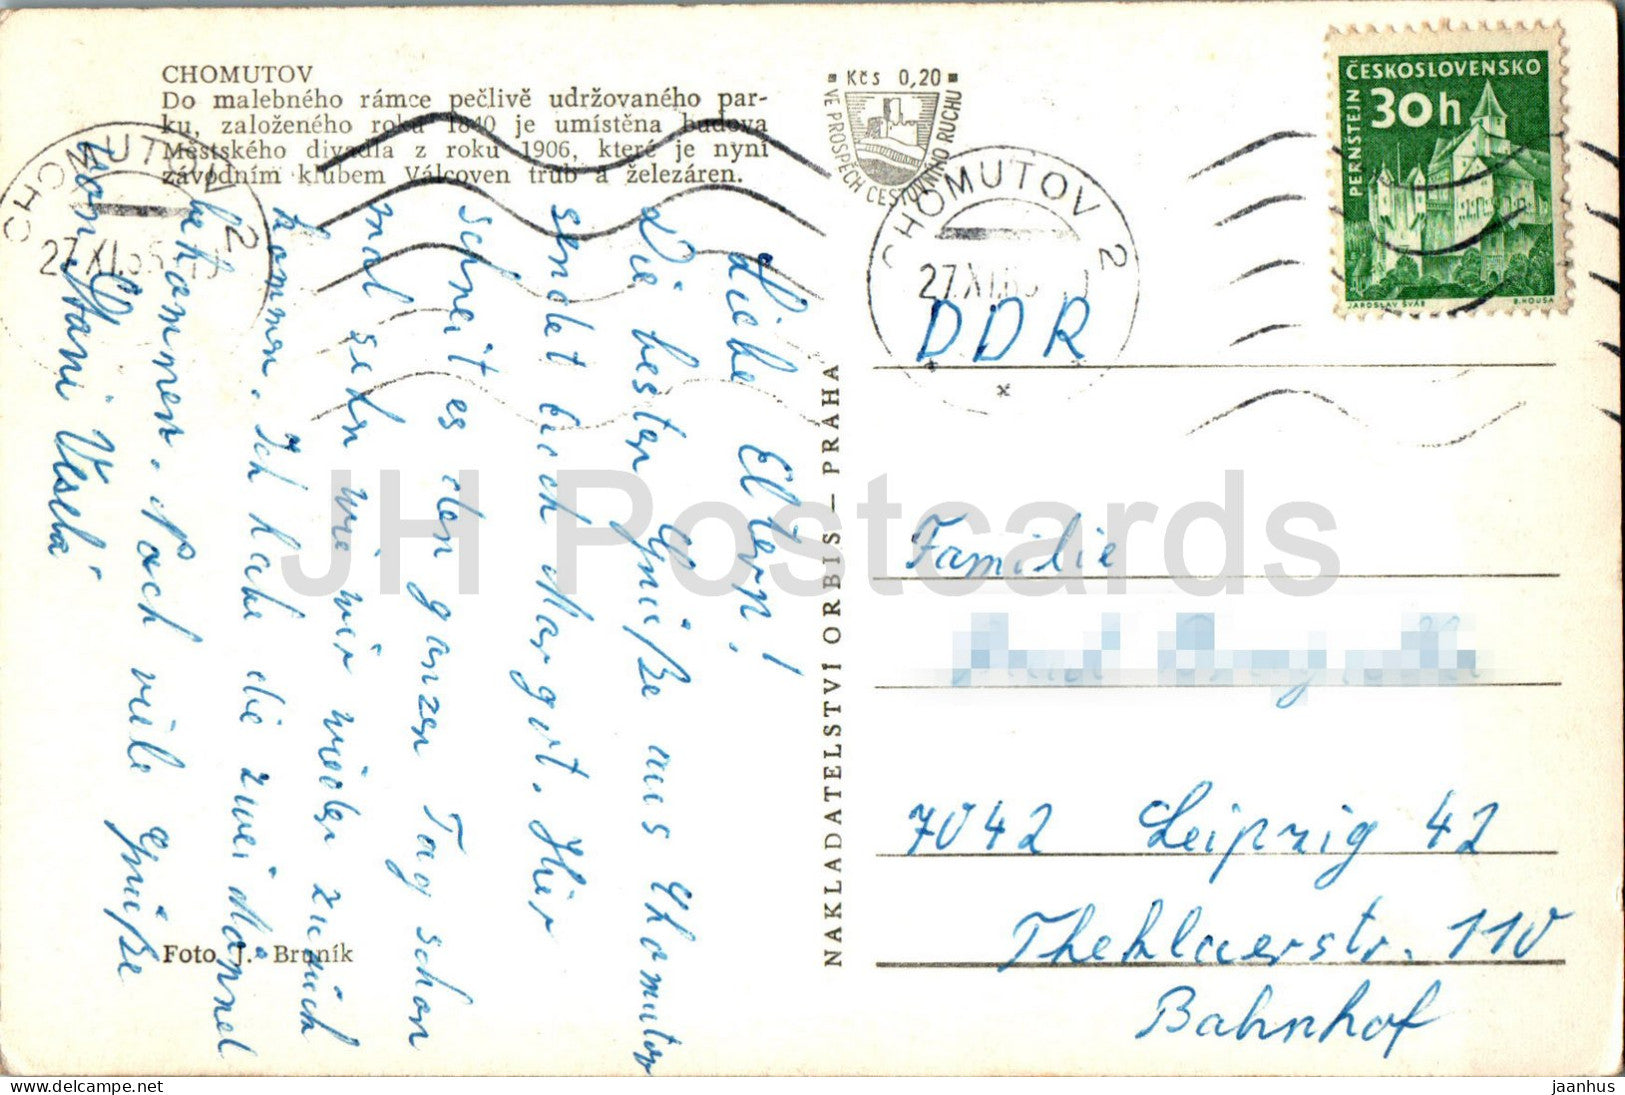 CHOMUTOV
Do malebného rámce pečlivě udržovaného par-
ku, založeného roku 1840 je umístěna budova
Městského divadla z roku 1906, které je nyní
závodním klubem Válcoven trub a železáren.
Kčs 0,20
VE PROSPĚCH CESTOVNÍHO RUCHU
CHOMUTOV 2
27.XI.65
CHOMUTOV 2
27.XI.65
ČESKOSLOVENSKO
30h
PERNŠTEJN
JAROSLAV ŠVÁB
B. HOUSA
Liebe Eltern!
Die besten Grüße aus Chomutov
sendet Euch Margot. Hier
schneit es den ganzen Tag schon
mal sehn wie wir wieder zurück
kommen. Ich habe die zwei Männel
bekommen. Noch viele Grüße
von
NAKLADATELSTVÍ ORBIS — PRAHA
DDR
Familie
7042 Leipzig 42
Theklaerstr. 110
Bahnhof
Foto J. Bruník
JH Postcards
www.delcampe.net
jaanhus